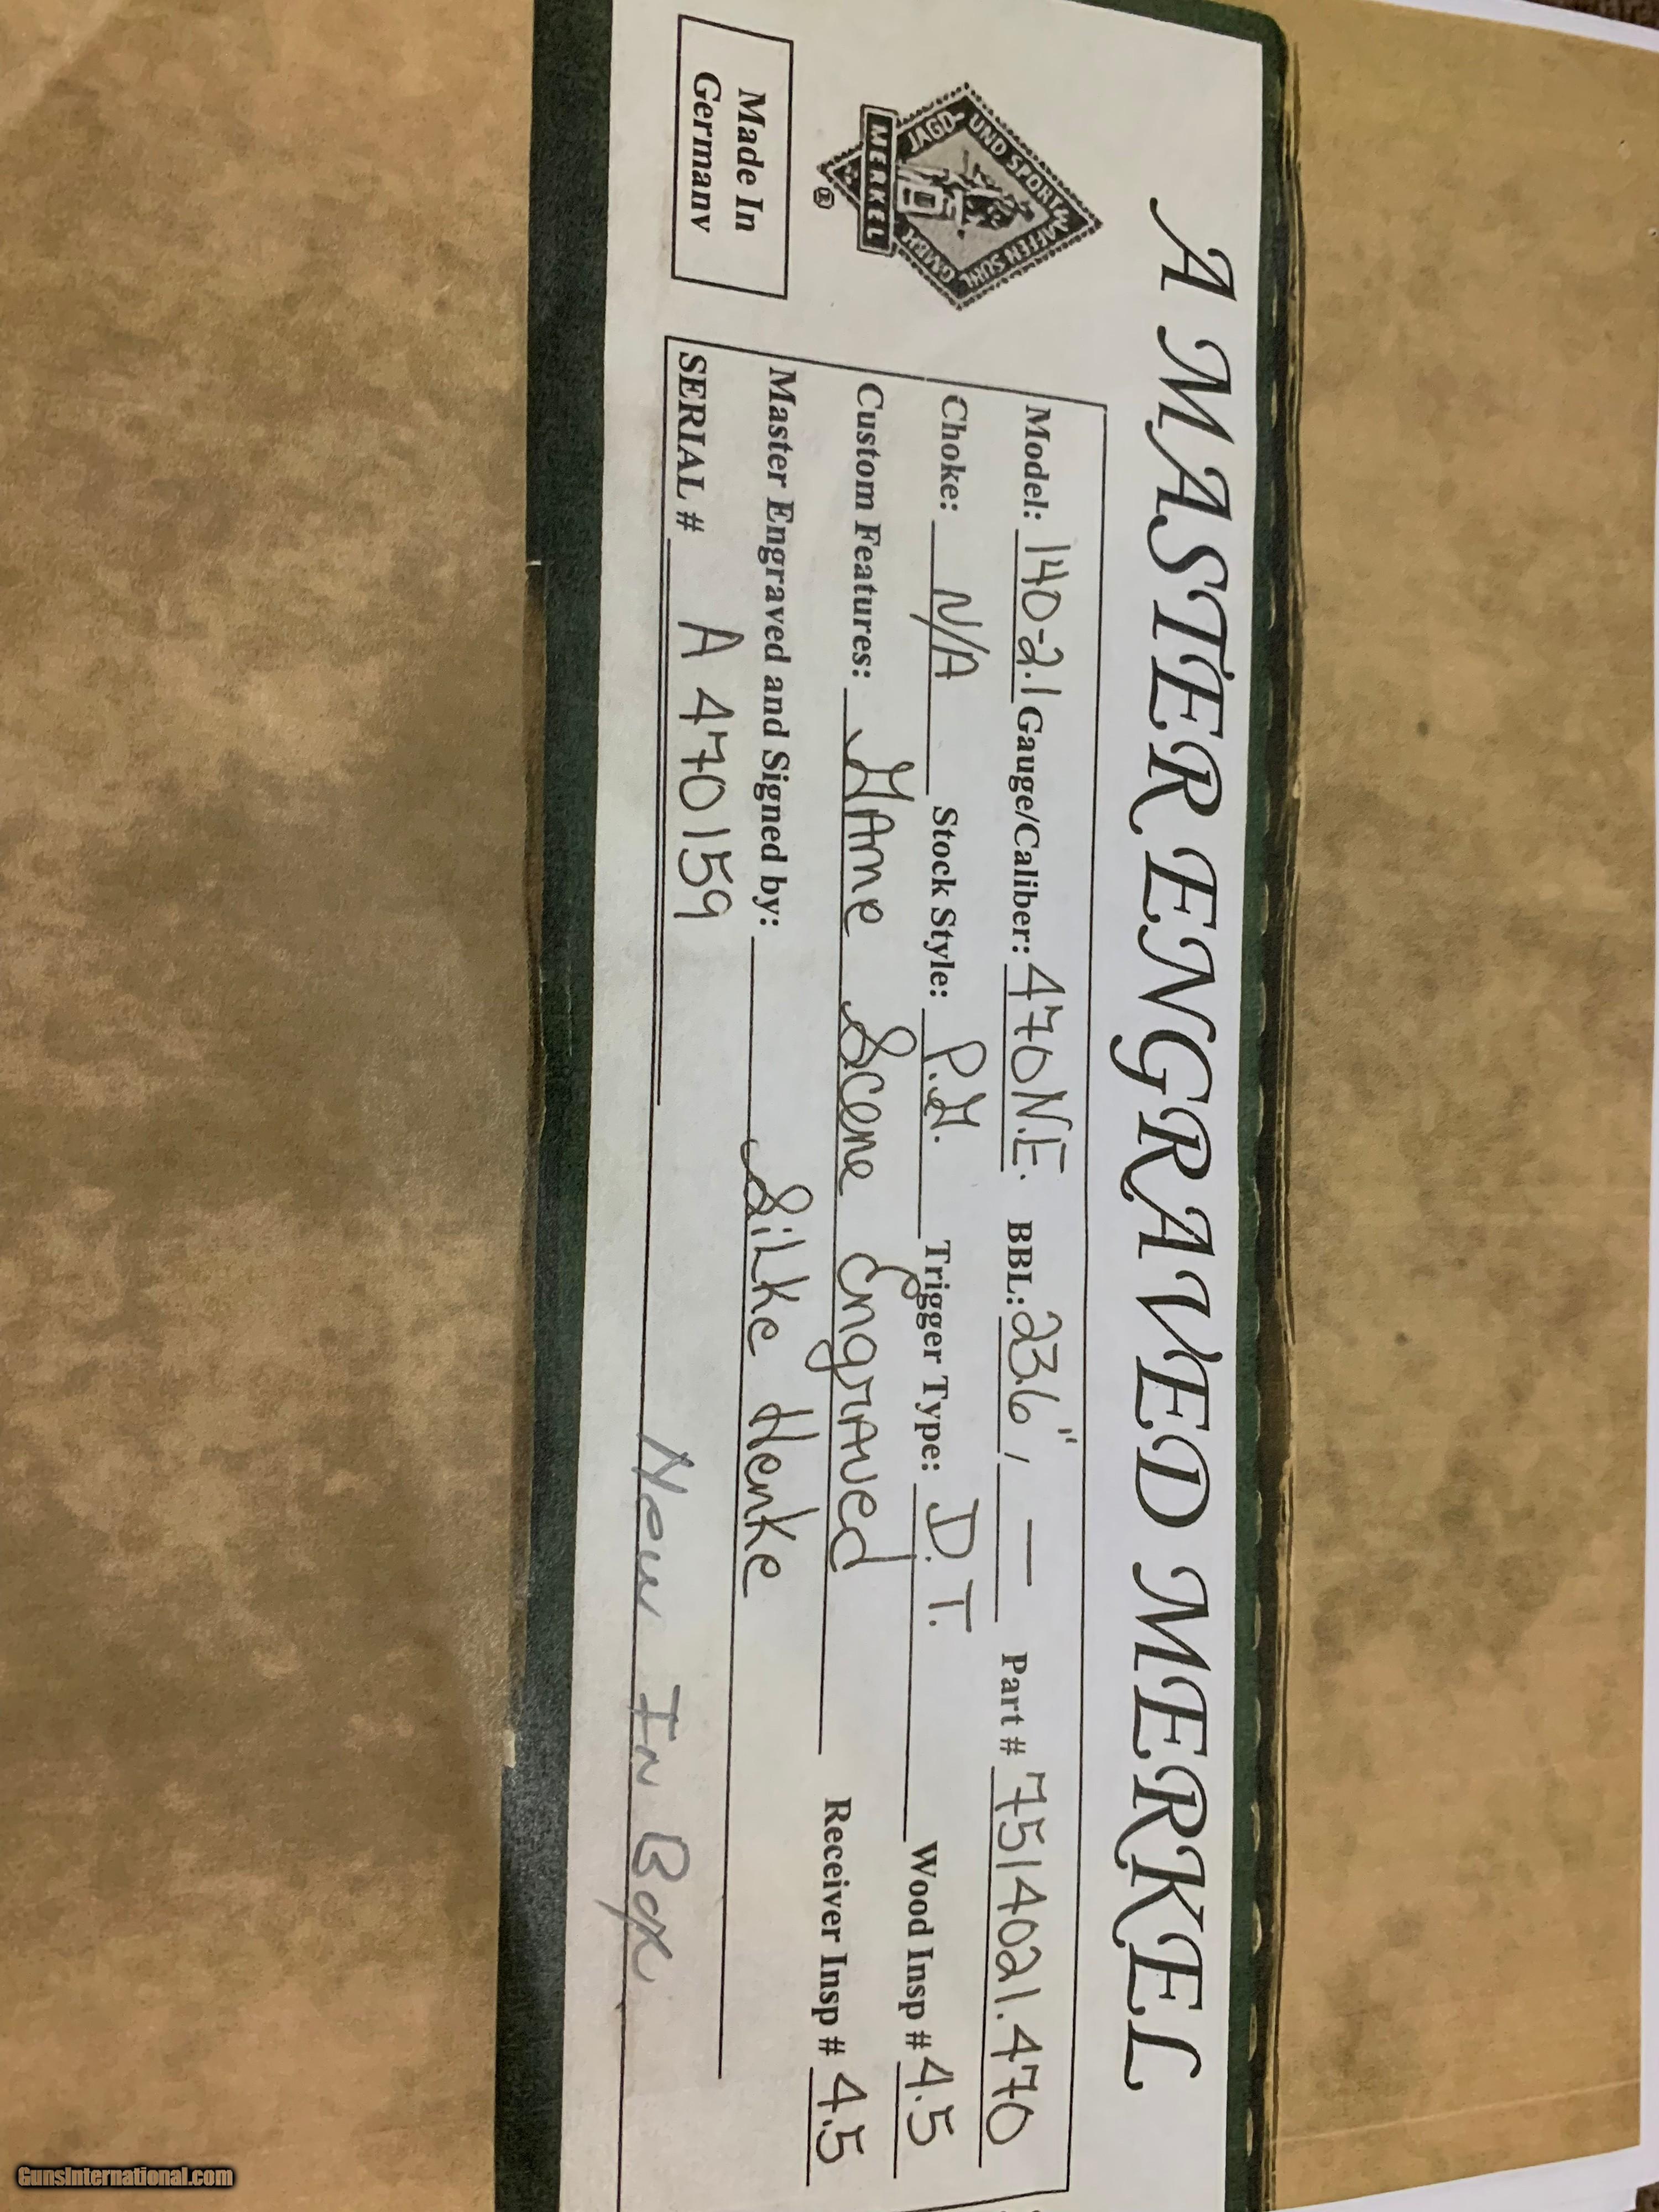 A MASTER ENGRAVED MERKEL
JAGD- UND SPORTWAFFEN SUHL GMBH
MERKEL
®
Made In
Germany
Model: 140-2.1 Gauge/Caliber: 470 N.E. BBL: 23.6", — Part # 7514021.470
Choke: N/A Stock Style: P.G. Trigger Type: D.T. Wood Insp # 4.5
Custom Features: Game Scene Engraved Receiver Insp # 4.5
Master Engraved and Signed by: Silke Henke
SERIAL # A 470159
New In Box
GunsInternational.com